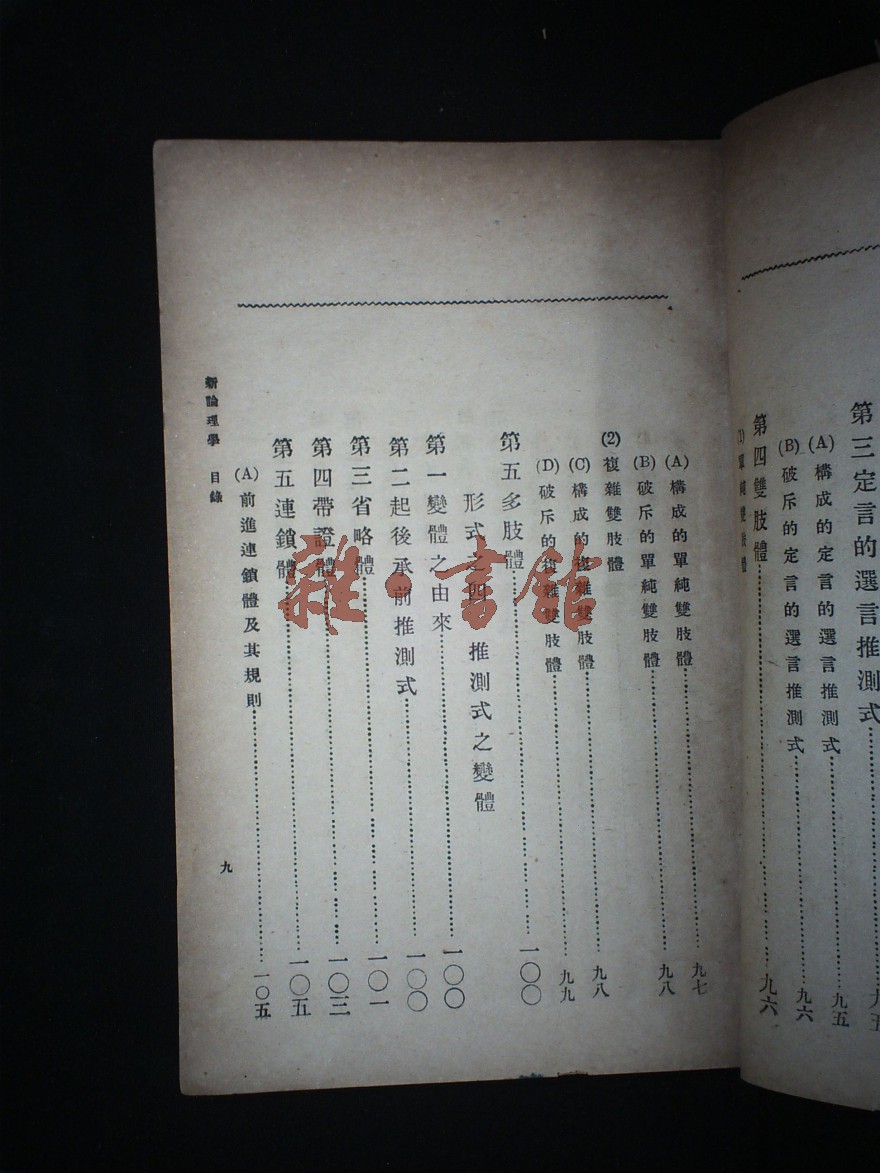 第三定言的選言推測式
(A)構成的定言的選言推測式……九五
(B)破斥的定言的選言推測式……九六
第四雙肢體……九六
(1)單純雙肢體
(A)構成的單純雙肢體……九七
(B)破斥的單純雙肢體……九八
(2)複雜雙肢體
(C)構成的複雜雙肢體……九八
(D)破斥的複雜雙肢體……九九
第五多肢體……一〇〇
形式之四 推測式之變體
第一變體之由來……一〇〇
第二起後承前推測式……一〇〇
第三省略體……一〇一
第四帶證體……一〇三
第五連鎖體……一〇五
(A)前進連鎖體及其規則……一〇五
新論理學 目錄
九
雜·書館